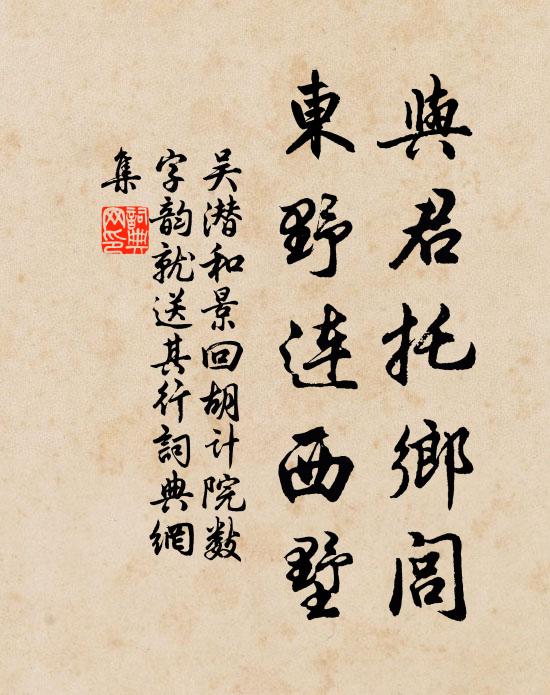 與君托鄉閭
東野連西墅
吴潜和景回胡计院数
字韵就送其行詞典網
集
詞典
网印